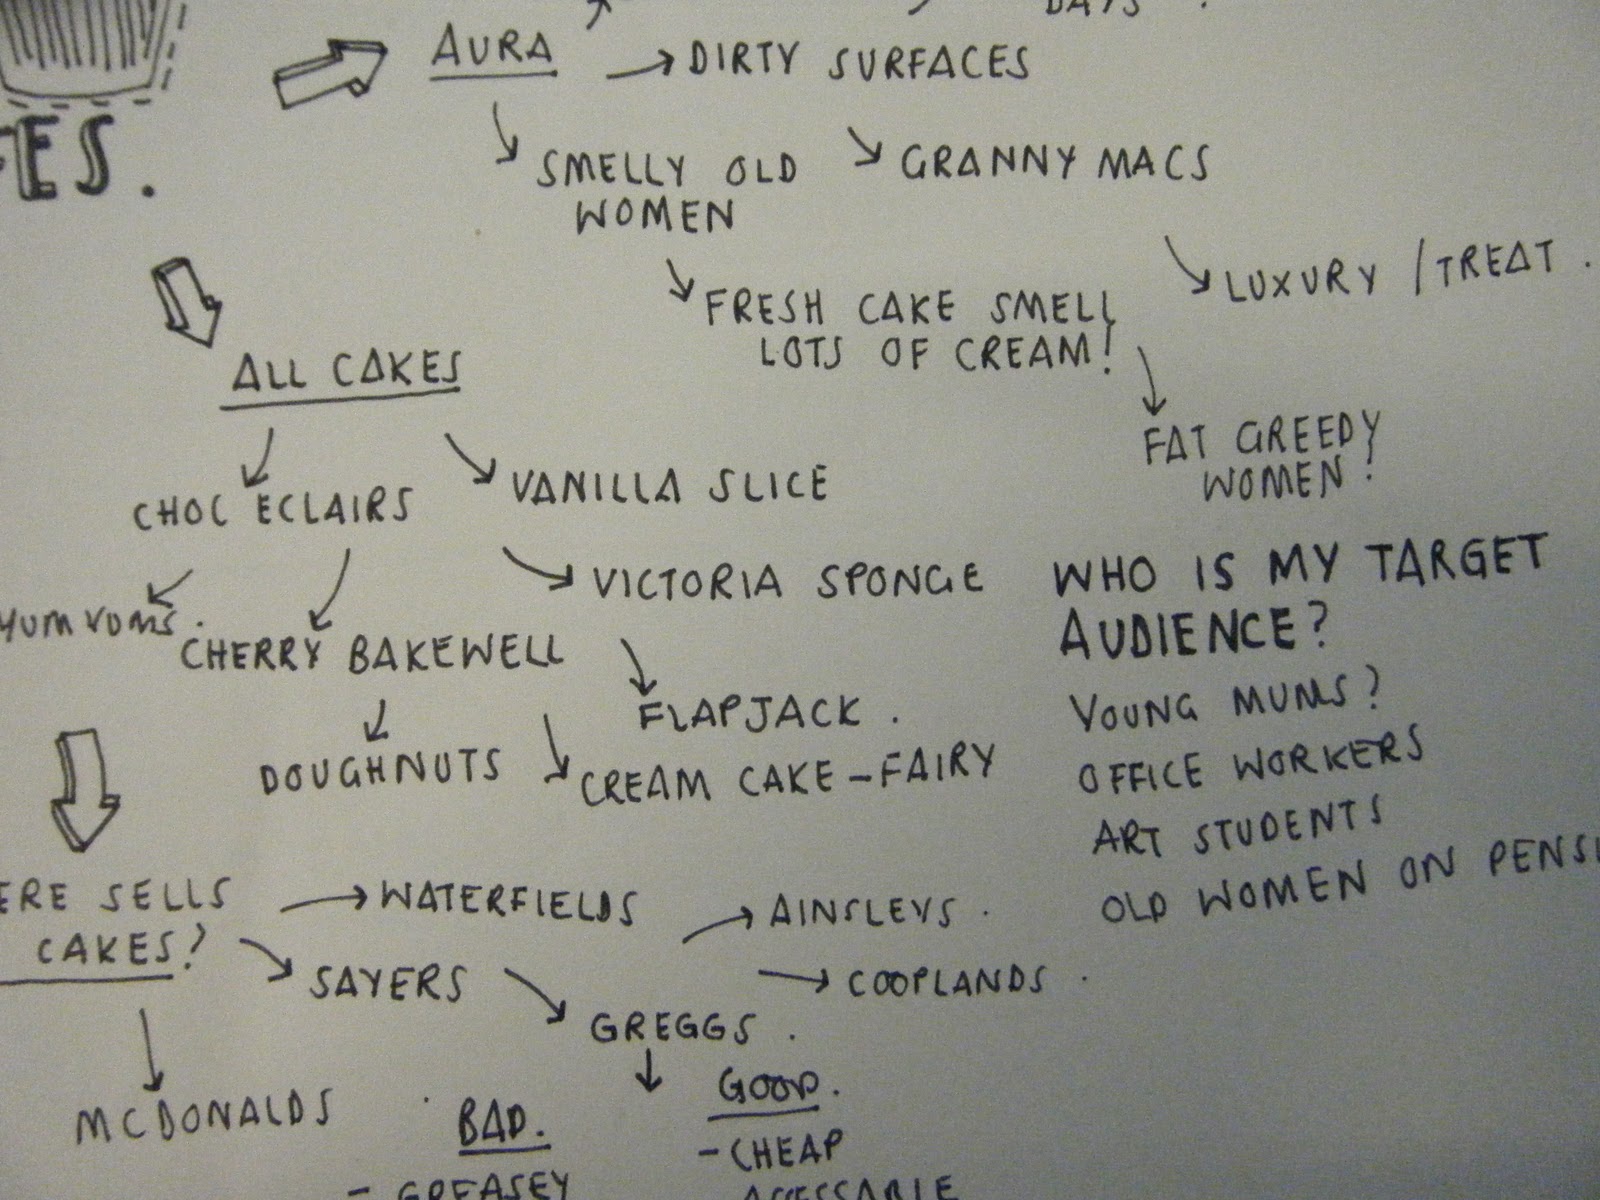 DAYS.
AURA
DIRTY SURFACES
ES.
SMELLY OLD
WOMEN
GRANNY MACS
LUXURY / TREAT.
FRESH CAKE SMELL
LOTS OF CREAM!
FAT GREEDY
WOMEN!
ALL CAKES
CHOC ECLAIRS
VANILLA SLICE
YUM YUMS.
VICTORIA SPONGE
CHERRY BAKEWELL
FLAPJACK.
DOUGHNUTS
CREAM CAKE - FAIRY
WHO IS MY TARGET
AUDIENCE?
YOUNG MUMS?
OFFICE WORKERS
ART STUDENTS
OLD WOMEN ON PENSI
ERE SELLS
CAKES?
WATERFIELDS
AINSLEYS.
SAYERS
COOPLANDS.
GREGGS.
MCDONALDS
BAD.
- GREASEY
GOOD.
- CHEAP
ACCESSABLE